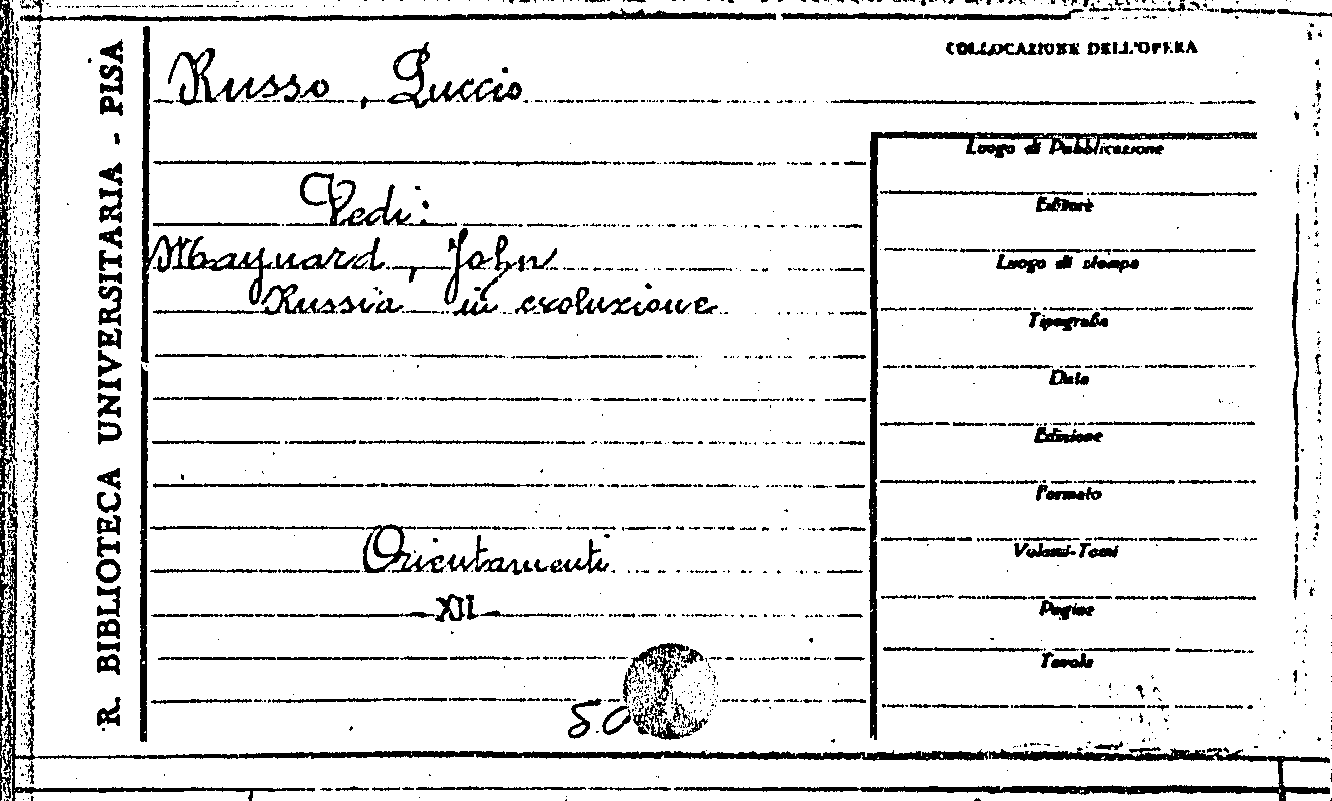 R. BIBLIOTECA UNIVERSITARIA - PISA
COLLOCAZIONE DELL'OPERA
Russo, Luccio
Vedi:
Maynard, John
Russia in evoluzione
Orientamenti
- XII -
Luogo di Pubblicazione
Editore
Luogo di stampa
Tipografia
Data
Edizione
Formato
Volumi-Tomi
Pagine
Tavole